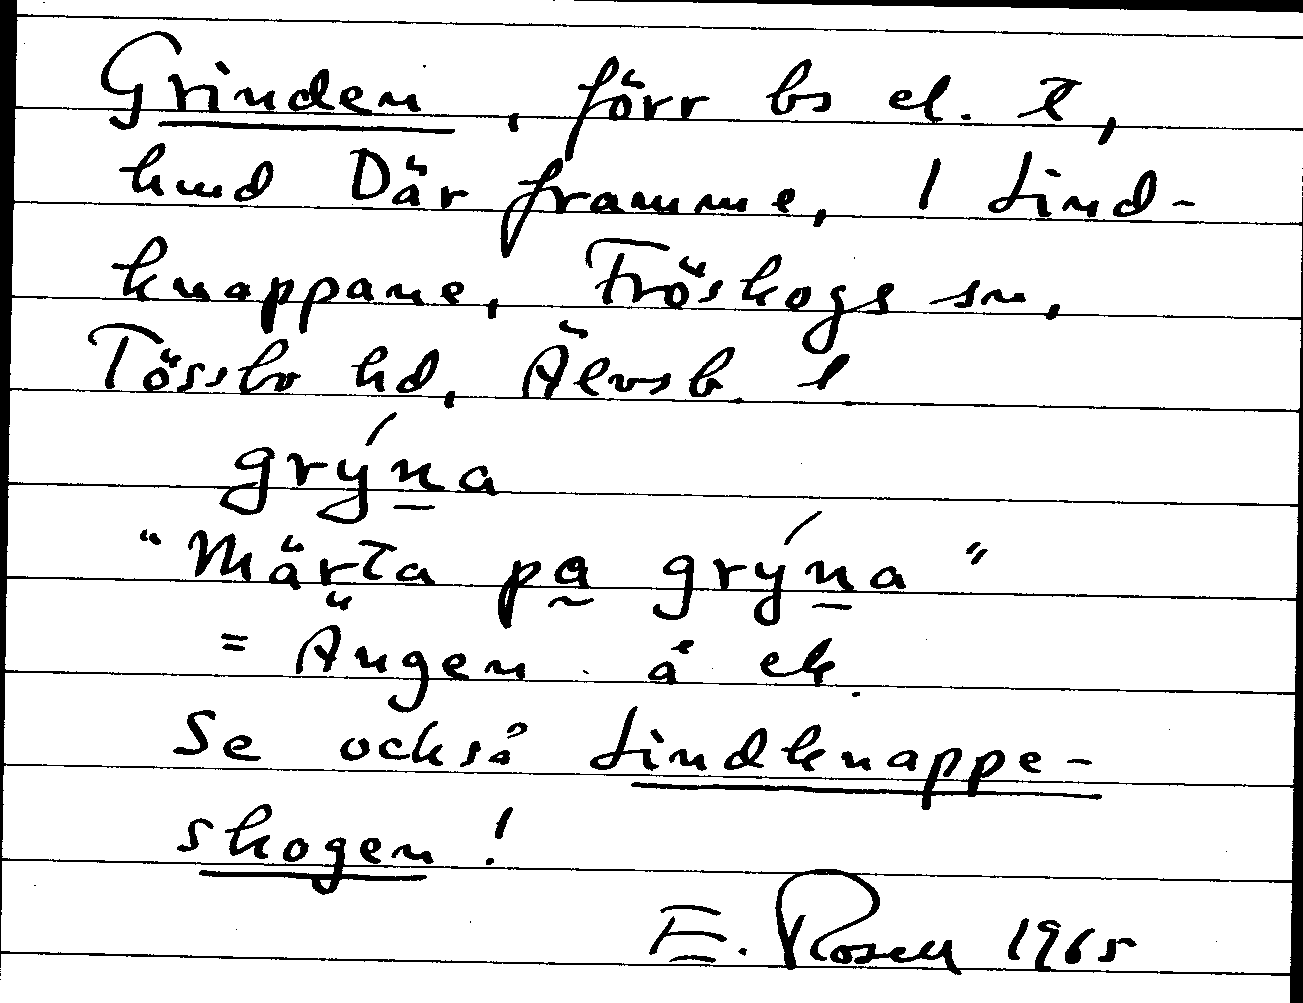 Grinden, förr bs el. t,
hmd Där framme, 1 Lind-
knappane, Fröskogs sn,
Tössbo hd, Älvsb. l
grýna
"Märta pa grýna"
= Ängen å ek.
Se också Lindknappe-
skogen!
E. Rosell 1965